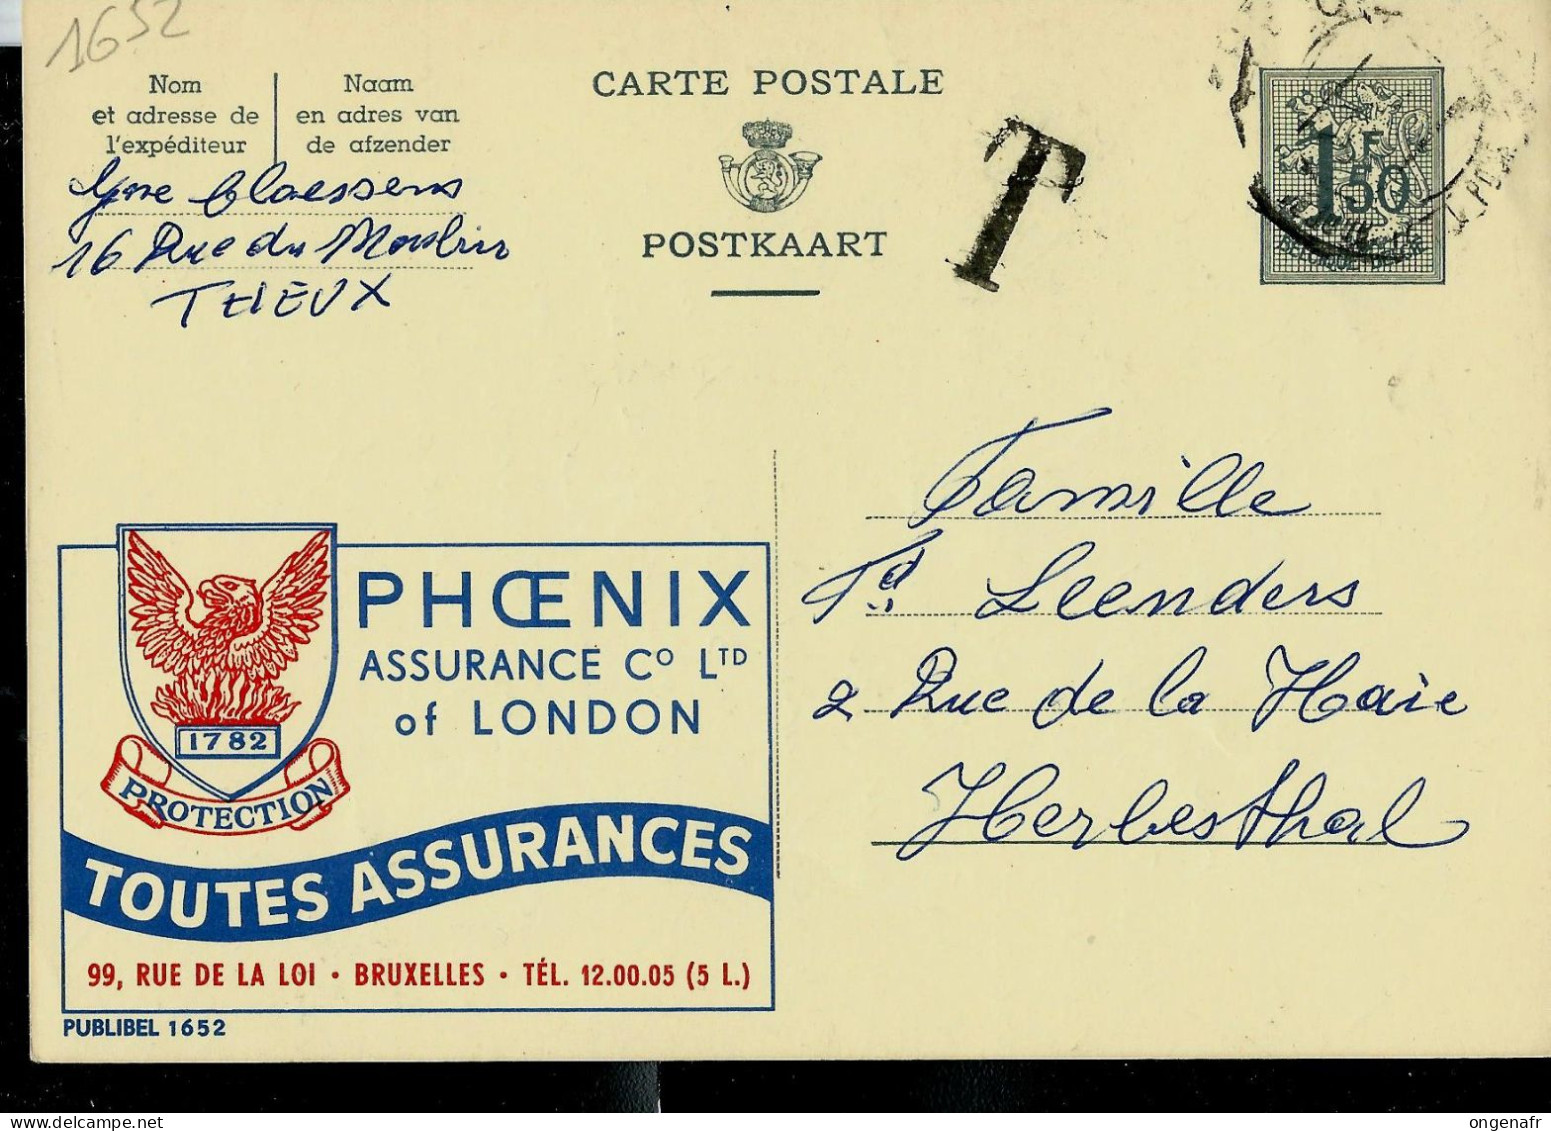 1652
Nom
et adresse de
l'expéditeur
Naam
en adres van
de afzender
CARTE POSTALE
POSTKAART
T
1F50
BELGIQUE BELGIE
Claessens
16 Rue du Moulin
THEUX
Famille
Leenders
2 Rue de la Haie
Herbesthal
PHŒNIX
ASSURANCE Cº LTD
of LONDON
1782
PROTECTION
TOUTES ASSURANCES
99, RUE DE LA LOI • BRUXELLES • TÉL. 12.00.05 (5 L.)
PUBLIBEL 1652
ongenafr